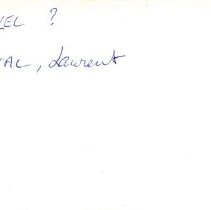 VEL ?
AL, Laurent